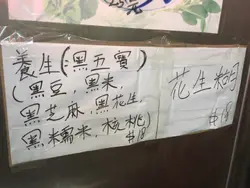 養生(黑五寶)
(黑豆,黑米,
黑芝麻,黑花生,
黑糯米,核桃)
$18
花生糊
$18